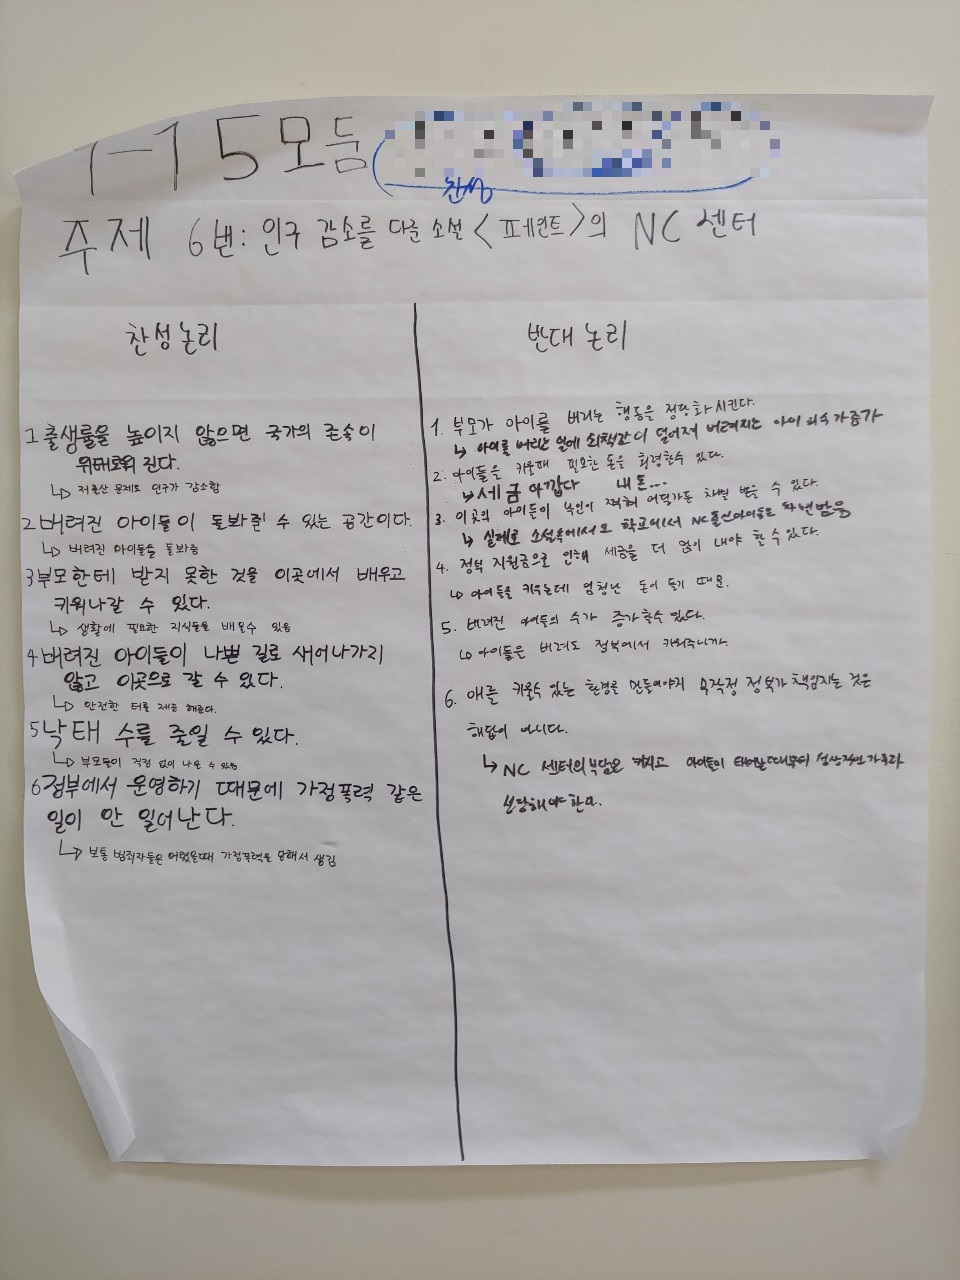 1-1 5모둠
찬성
주제 6번: 인구 감소를 다룬 소설 <페인트>의 NC 센터
찬성논리
1 출생률을 높이지 않으면 국가의 존속이
위태로워 진다.
↳ 저출산 문제로 인구가 감소함
2 버려진 아이들이 돌봐줄 수 있는 공간이다.
↳ 버려진 아이들을 돌봐줌
3 부모한테 받지 못한 것을 이곳에서 배우고
키워나갈 수 있다.
↳ 생활에 필요한 지식들을 배울수 있음
4 버려진 아이들이 나쁜 길로 새어나가지
않고 이곳으로 갈 수 있다.
↳ 안전한 터를 제공 해준다.
5 낙태 수를 줄일 수 있다.
↳ 부모들이 걱정 없이 나을 수 있음
6 정부에서 운영하기 때문에 가정폭력 같은
일이 안 일어난다.
↳ 보통 범죄자들은 어렸을때 가정폭력을 당해서 생김
반대 논리
1. 부모가 아이를 버리는 행동을 정당화 시킨다.
↳ 아이를 버리는 일에 죄책감이 덜어져 버려지는 아이 의 수가 증가
2. 아이들을 키울때 필요한 돈을 횡령할수 있다.
↳ 세금 아깝다 내 돈...
3. 이곳의 아이들이 낙인이 찍혀 어딜가든 차별 받을 수 있다.
↳ 실제로 소설속에서도 학교에서 NC출신아이들은 차별받음
4. 정부 지원금으로 인해 세금을 더 많이 내야 할 수 있다.
↳ 아이들을 키우는데 엄청난 돈이 들기 때문.
5. 버려진 아이들의 수가 증가 할수 있다.
↳ 아이들은 버려도 정부에서 키워주니까.
6. 애를 키울수 있는 환경을 만들어야지 무작정 정부가 책임지는 것은
해답이 아니다.
↳ NC 센터의 부담은 커지고 아이들이 태어날때부터